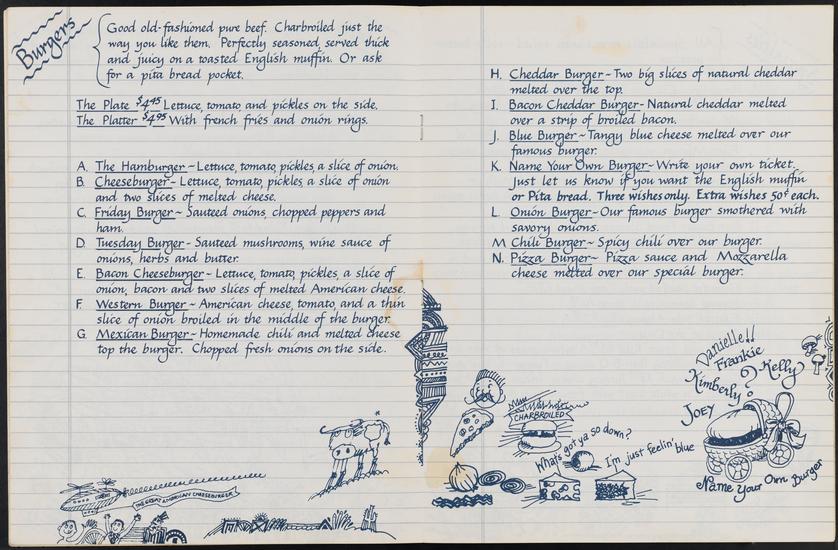 Burgers
Good old-fashioned pure beef. Charbroiled just the
way you like them. Perfectly seasoned, served thick
and juicy on a toasted English muffin. Or ask
for a pita bread pocket.
The Plate $4.45 Lettuce, tomato and pickles on the side.
The Platter $4.95 With french fries and onion rings.
A. The Hamburger ~ Lettuce, tomato, pickles, a slice of onion.
B. Cheeseburger ~ Lettuce, tomato, pickles, a slice of onion
and two slices of melted cheese.
C. Friday Burger ~ Sauteed onions, chopped peppers and
ham.
D. Tuesday Burger - Sauteed mushrooms, wine sauce of
onions, herbs and butter.
E. Bacon Cheeseburger ~ Lettuce, tomato, pickles, a slice of
onion, bacon and two slices of melted American cheese.
F. Western Burger ~ American cheese, tomato, and a thin
slice of onion broiled in the middle of the burger.
G. Mexican Burger - Homemade chili and melted cheese
top the burger. Chopped fresh onions on the side.
THE GREAT AMERICAN CHEESEBURGER
H. Cheddar Burger ~ Two big slices of natural cheddar
melted over the top.
I. Bacon Cheddar Burger - Natural cheddar melted
over a strip of broiled bacon.
J. Blue Burger ~ Tangy blue cheese melted over our
famous burger.
K. Name Your Own Burger ~ Write your own ticket.
Just let us know if you want the English muffin
or Pita bread. Three wishes only. Extra wishes 50¢ each.
L. Onion Burger ~ Our famous burger smothered with
savory onions.
M Chili Burger ~ Spicy chili over our burger.
N. Pizza Burger ~ Pizza sauce and Mozzarella
cheese melted over our special burger.
CHARBROILED
What's got ya so down?
I'm just feelin' blue
Danielle!!
Frankie
Kimberly? Kelly
Joey
Name Your Own Burger